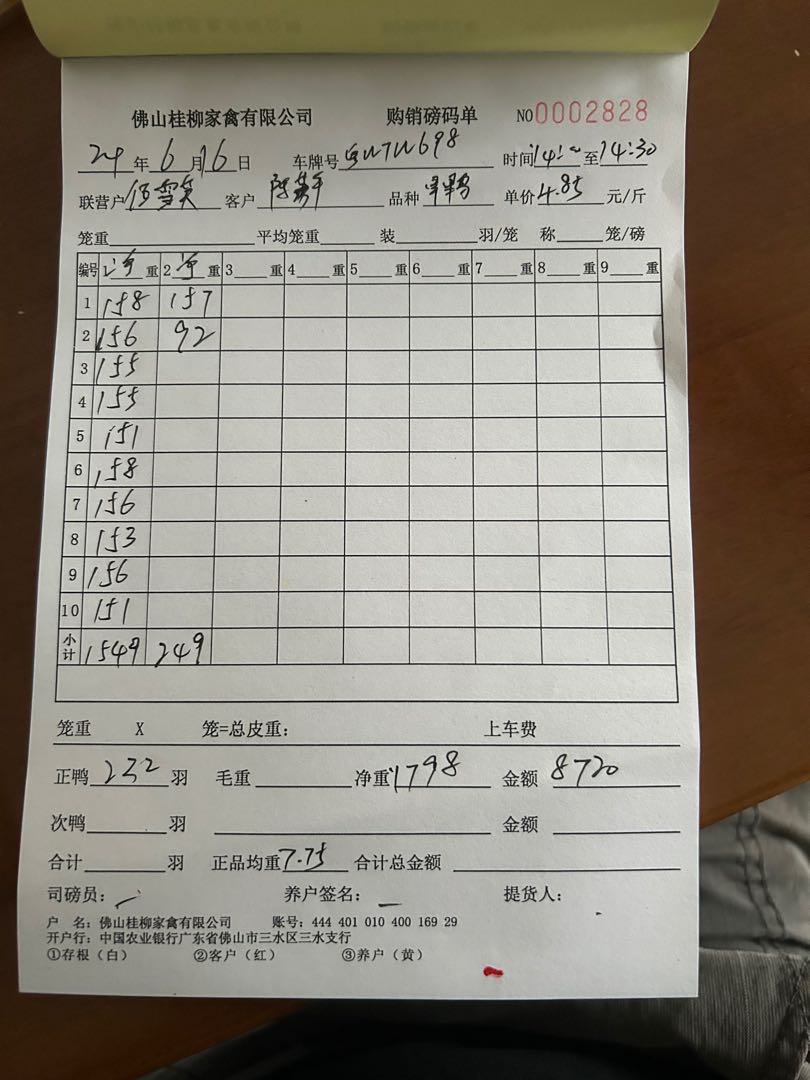 佛山桂柳家禽有限公司 购销磅码单 NO0002828
24年6月16日 车牌号 W698 时间14: 至14:30
联营户 伍雪笑 客户 陈 品种 单价4.85元/斤
笼重 平均笼重 装 羽/笼 称 笼/磅
编号 1净重 2净重 3 重 4 重 5 重 6 重 7 重 8 重 9 重
1 158 157
2 156 92
3 155
4 155
5 151
6 158
7 156
8 153
9 156
10 151
小计 1549 249
笼重 X 笼=总皮重： 上车费
正鸭232羽 毛重 净重1798 金额8720
次鸭 羽 金额
合计 羽 正品均重7.75 合计总金额
司磅员： 养户签名： 提货人：
户 名：佛山桂柳家禽有限公司 账号：444 401 010 400 169 29
开户行：中国农业银行广东省佛山市三水区三水支行
①存根（白） ②客户（红） ③养户（黄）